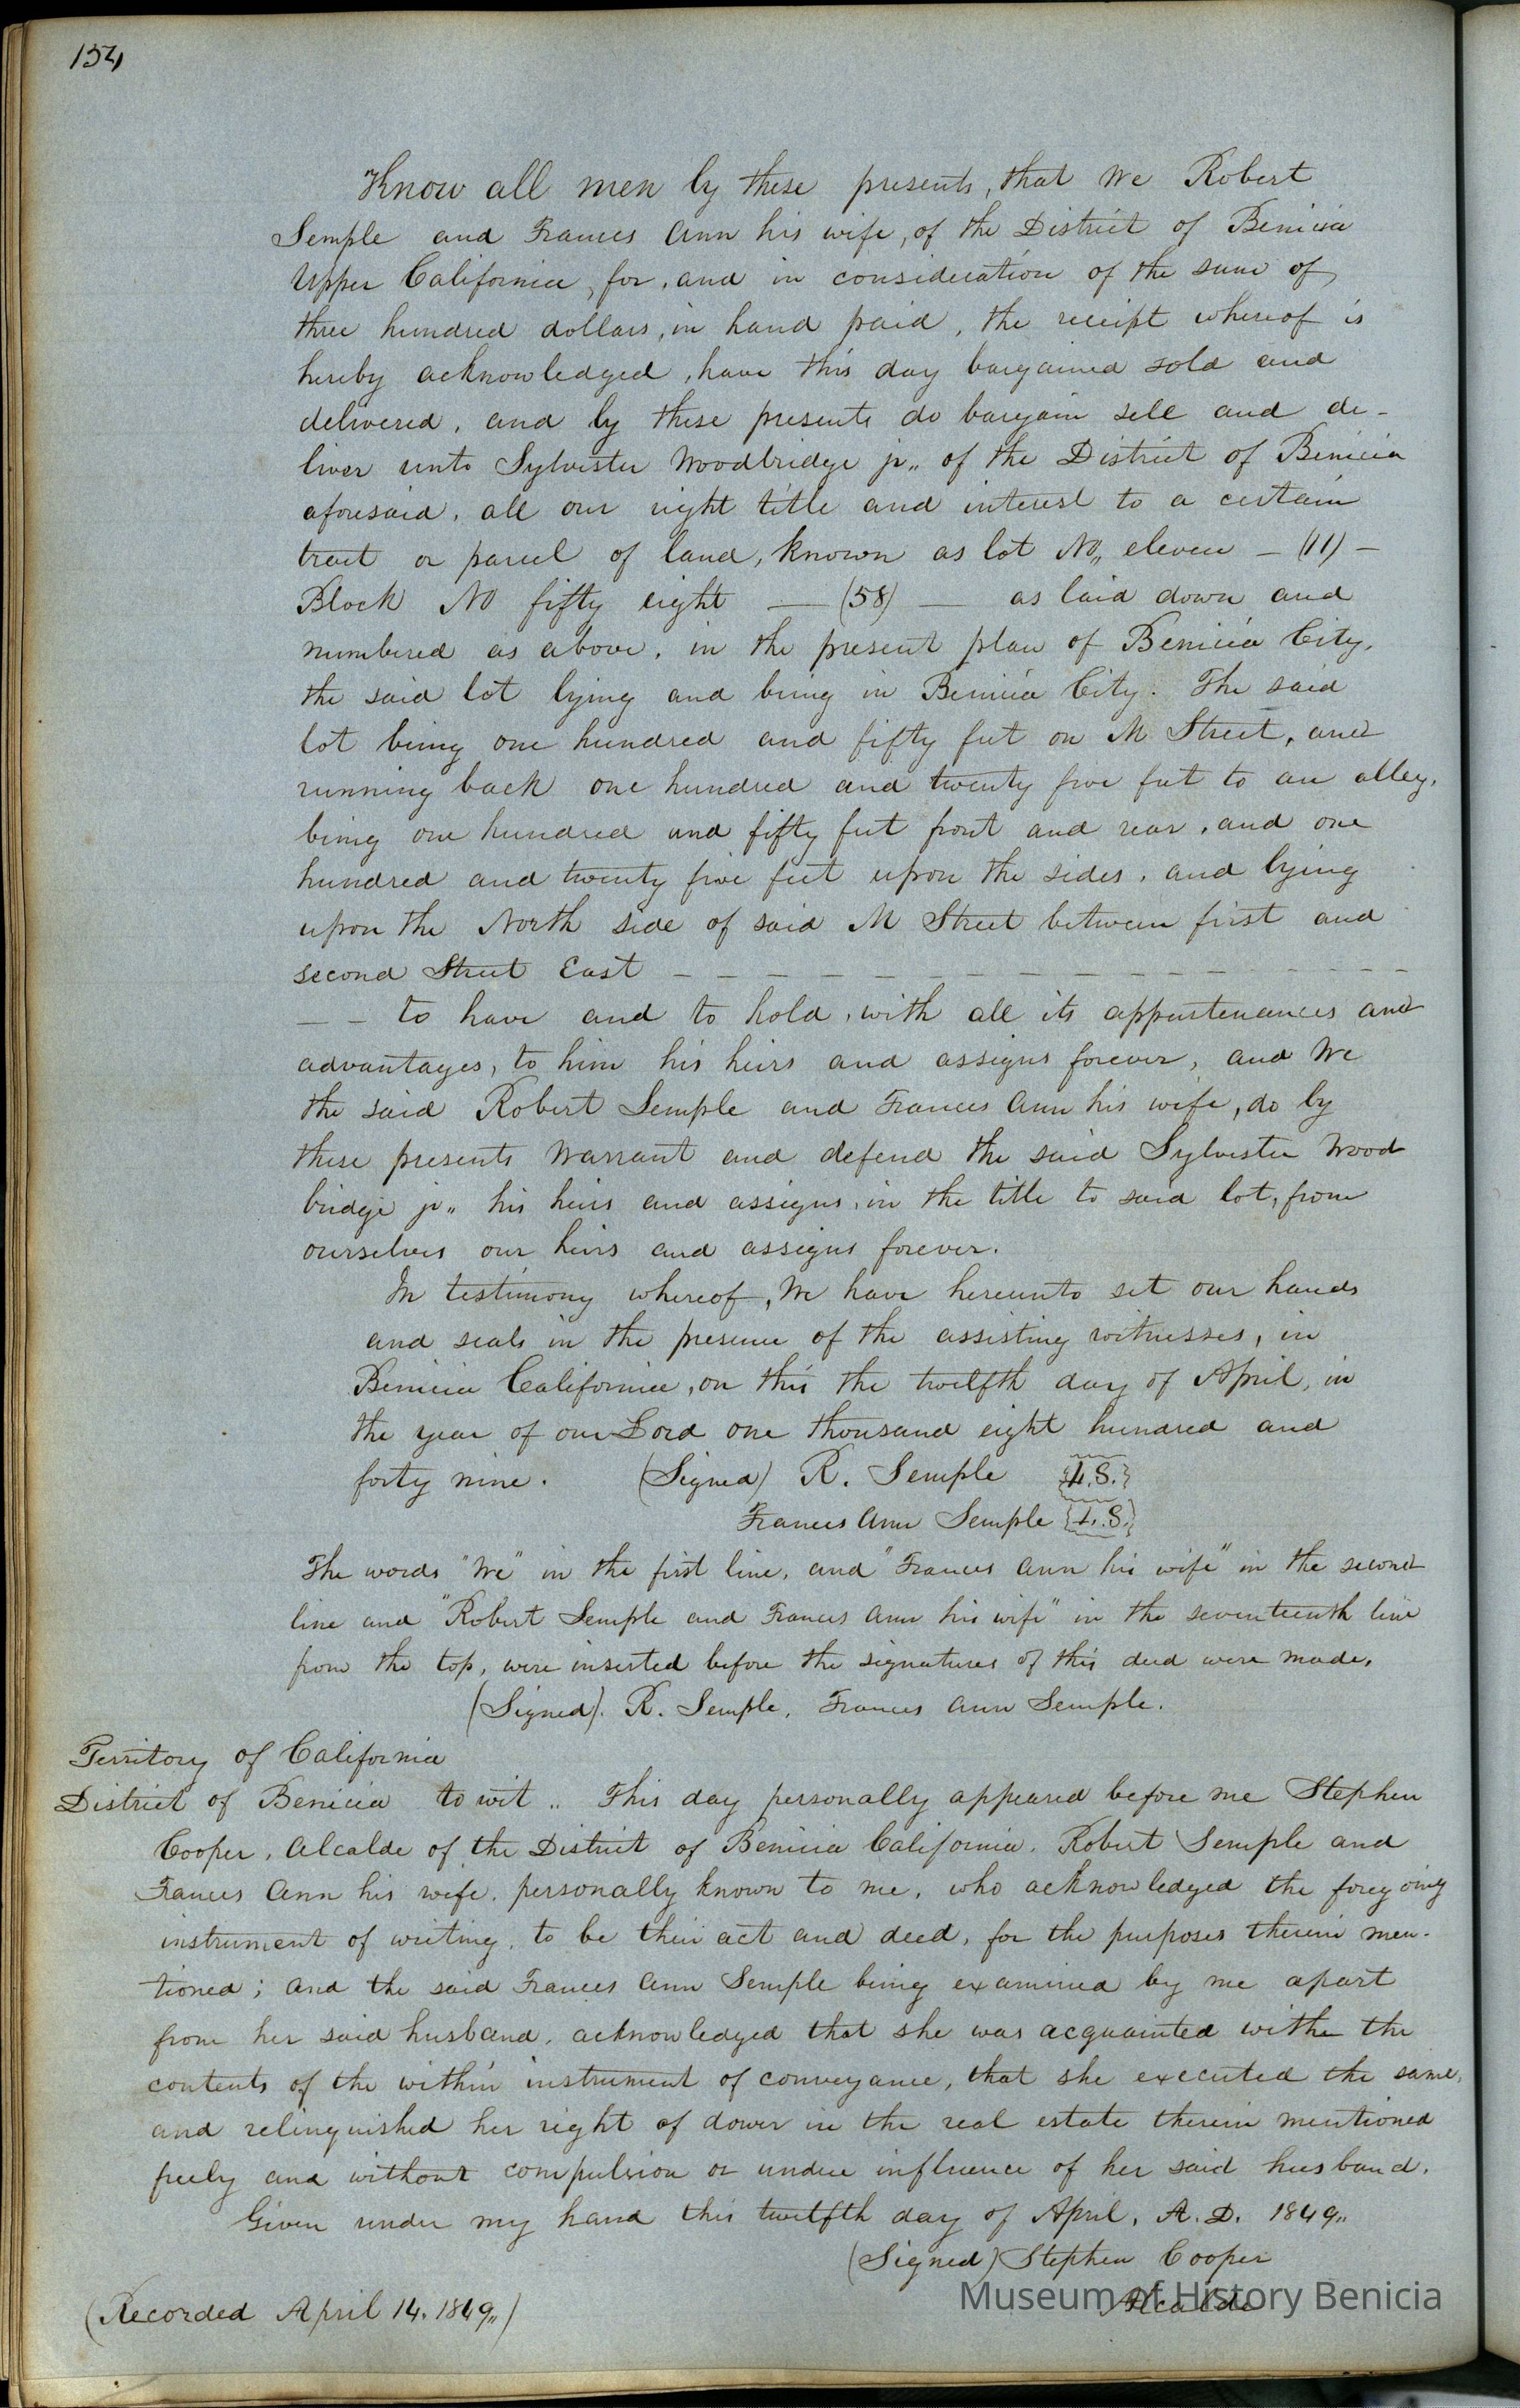 154
Know all men by these presents, that We Robert
Semple and Frances Ann his wife, of the District of Benicia
Upper California, for, and in consideration of the sum of
three hundred dollars, in hand paid, the receipt whereof is
hereby acknowledged, have this day bargained sold and
delivered, and by these presents do bargain sell and de-
liver unto Sylvester Woodbridge jr,, of the District of Benicia
aforesaid, all our right title and interest to a certain
tract or parcel of land, known as lot No,, eleven - (11) -
Block No fifty eight — (58) — as laid down and
numbered as above, in the present plan of Benicia City,
the said lot lying and being in Benicia City. The said
lot being one hundred and fifty feet on M Street, and
running back one hundred and twenty five feet to an alley,
being one hundred and fifty feet front and rear, and one
hundred and twenty five feet upon the sides, and lying
upon the North side of said M Street between first and
second Street East - - - - - - - - - - - - - -
- - to have and to hold, with all its appurtenances and
advantages, to him his heirs and assigns forever, and We
the said Robert Semple and Frances Ann his wife, do by
these presents Warrant and defend the said Sylvester Wood
bridge jr,, his heirs and assigns, in the title to said lot, from
ourselves our heirs and assigns forever.
In testimony whereof, We have hereunto set our hands
and seals in the presence of the assisting witnesses, in
Benicia California, on this the twelfth day of April, in
the year of our Lord one thousand eight hundred and
forty nine. (Signed) R. Semple {L.S.}
Frances Ann Semple {L.S.}
The words "We" in the first line, and "Frances Ann his wife" in the second
line and "Robert Semple and Frances Ann his wife" in the seventeenth line
from the top, were inserted before the signatures of this deed were made.
(Signed). R. Semple, Frances Ann Semple.
Territory of California
District of Benicia to wit ,, This day personally appeared before me Stephen
Cooper, Alcalde of the District of Benicia California, Robert Semple and
Frances Ann his wife, personally known to me, who acknowledged the foregoing
instrument of writing, to be their act and deed, for the purposes therein men-
tioned; and the said Frances Ann Semple being examined by me apart
from her said husband, acknowledged that she was acquainted withe the
contents of the within instrument of conveyance, that she executed the same,
and relinquished her right of dower in the real estate therein mentioned
freely and without compulsion or undue influence of her said husband.
Given under my hand this twelfth day of April, A.D. 1849,,
(Signed) Stephen Cooper
Alcalde
(Recorded April 14, 1849,,)
Museum of History Benicia